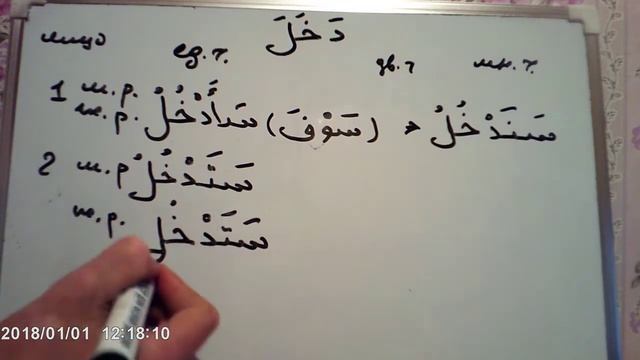 лицо ед.ч. دَخَلَ дв.ч мн.ч.
1 м.р. ж.р. سَأَدْخُلُ (سَوْفَ) سَنَدْخُلُ
2 м.р سَتَدْخُلُ
ж.р. سَتَدْخُلِ
2018/01/01 12:18:10